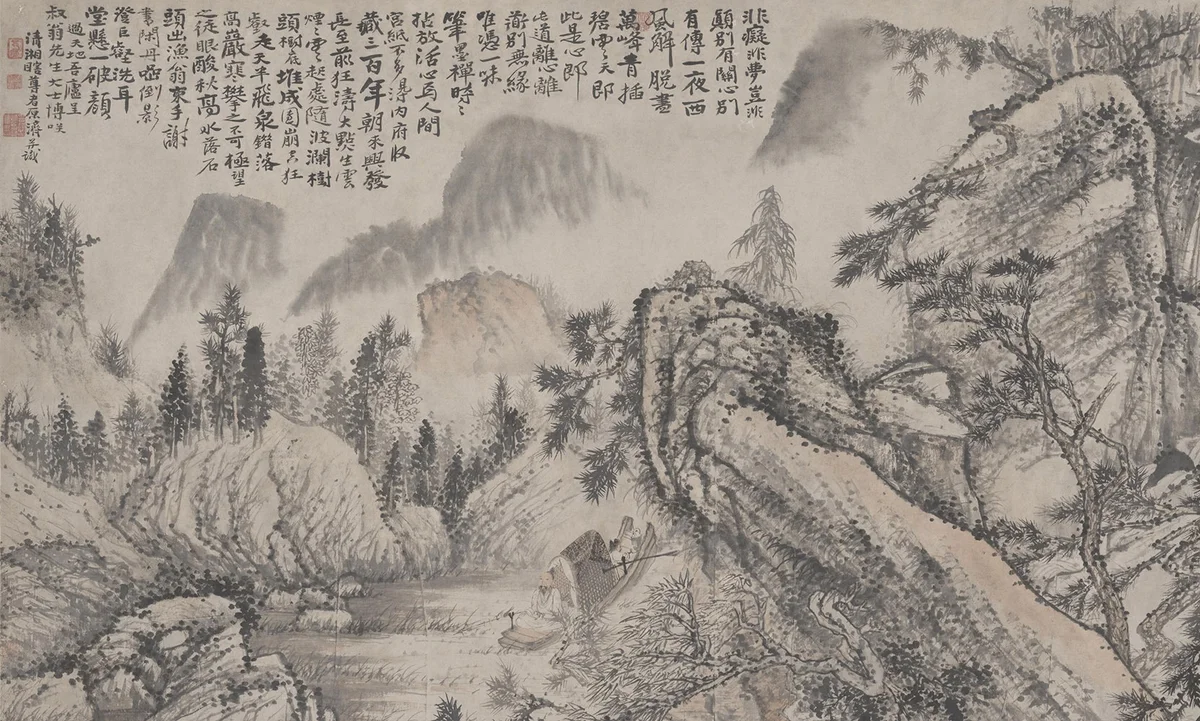 非癡非夢豈非
顛別有關心別
有傳一夜西
風解脫畫
萬峰青插
碧雲天即
此是心即
此道離心離
道別無緣
唯憑一味
筆墨禪時〻
拈放活心焉人間
宮紙不多得內府收
藏三百年朝來興發
長至前狂濤大點生雲
煙〻雲起處隨波瀾樹
頭樹底堆成團崩空狂
壑走天半飛泉錯落
高巖窺攀之不可極望
之徒眼酸秋高水落石
頭出漁翁束手謝
書閑丹嵒倒影
澄巨壑洗耳
堂懸一破顏
過天地吾廬呈
叔翁先生大士博咲
清湘瞎尊者原濟并識